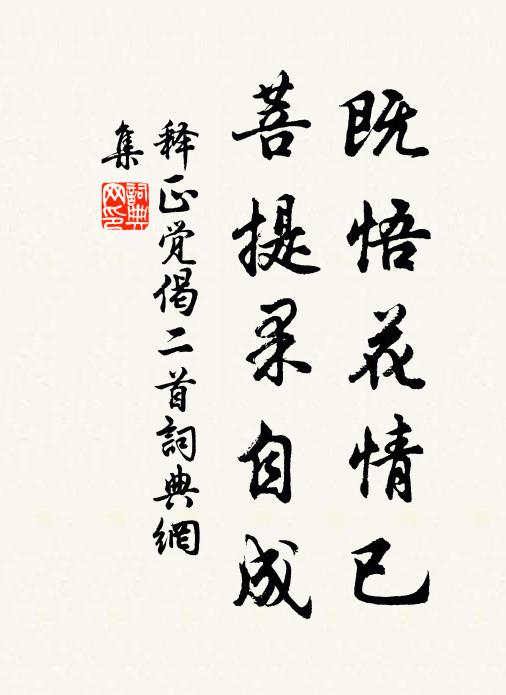 既悟花情已
菩提果自成
释正觉偈二首詞典網
集
詞典网印